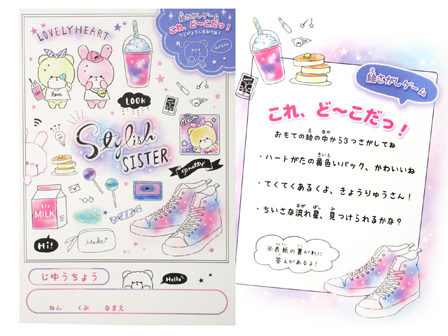 LOVELY HEART
絵さがしゲーム
これ、ど〜こだっ!
LOOK
love
Stylish
SISTER
Pretty
MILK
Hi!
Make!
Hello!
じゆうちょう
ねん くみ なまえ
絵さがしゲーム
これ、ど〜こだっ!
おもての絵の中から3つさがしてね
・ハートがたの黄色いバック、かわいいね
・てくてくあるくよ、きょうりゅうさん!
・ちいさな流れ星、見つけられるかな?
※表紙の裏がわに
答えがあるよ!